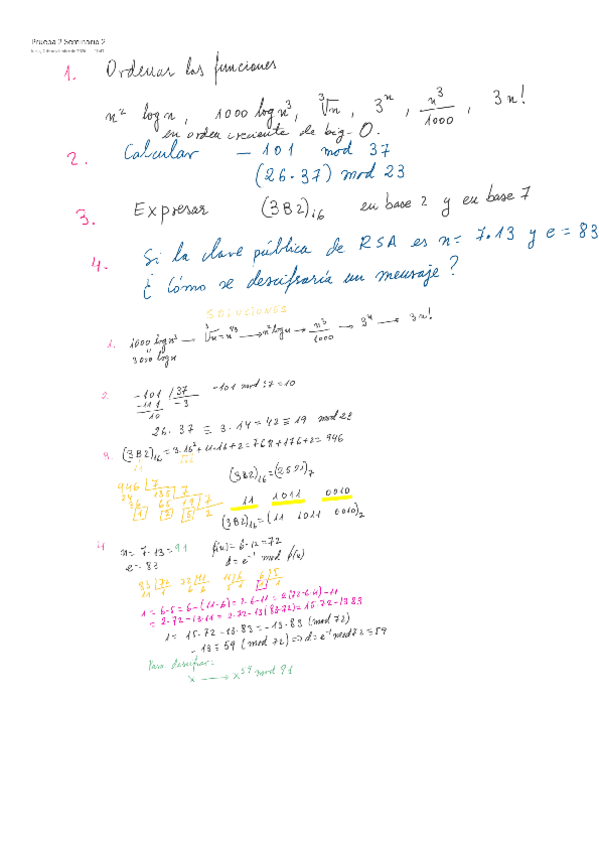 Prueba 2 Seminario 2
1. Ordenar las funciones
n² log n, 1000 log n³, ³√n, 3ⁿ, n³/1000, 3n!
en orden creciente de big-O.
2. Calcular -101 mod 37
(26·37) mod 23
3. Expresar (3B2)₁₆ en base 2 y en base 7
4. Si la clave pública de RSA es n= 7·13 y e = 83
¿Cómo se descifraría un mensaje?
SOLUCIONES
1. 1000 log n³ → ³√n = n^(1/3) → n² log n → n³/1000 → 3ⁿ → 3n!
3000 log n
2. -101 | 37 -101 mod 37 = 10
-111 -3
10
26·37 ≡ 3·14 = 42 ≡ 19 mod 23
3. (3B2)₁₆ = 3·16² + 11·16 + 2 = 768 + 176 + 2 = 946
(3B2)₁₆ = (2521)₇
946 | 7
11 1011 0010
(3B2)₁₆ = (11 1011 0010)₂
4. n = 7·13 = 91 φ(n) = 6·12 = 72
e = 83 d = e⁻¹ mod φ(n)
83 | 72 72 | 11 11 | 6 6 | 5
1 = 6-5 = 6-(11-6) = 2·6-11 = 2(72-6·11)-11
= 2·72-13·11 = 2·72-13(83-72) = 15·72-13·83
1 = 15·72-13·83 = -13·83 (mod 72)
-13 ≡ 59 (mod 72) ⇒ d = e⁻¹ mod 72 = 59
Para descifrar:
x → x⁵⁹ mod 91